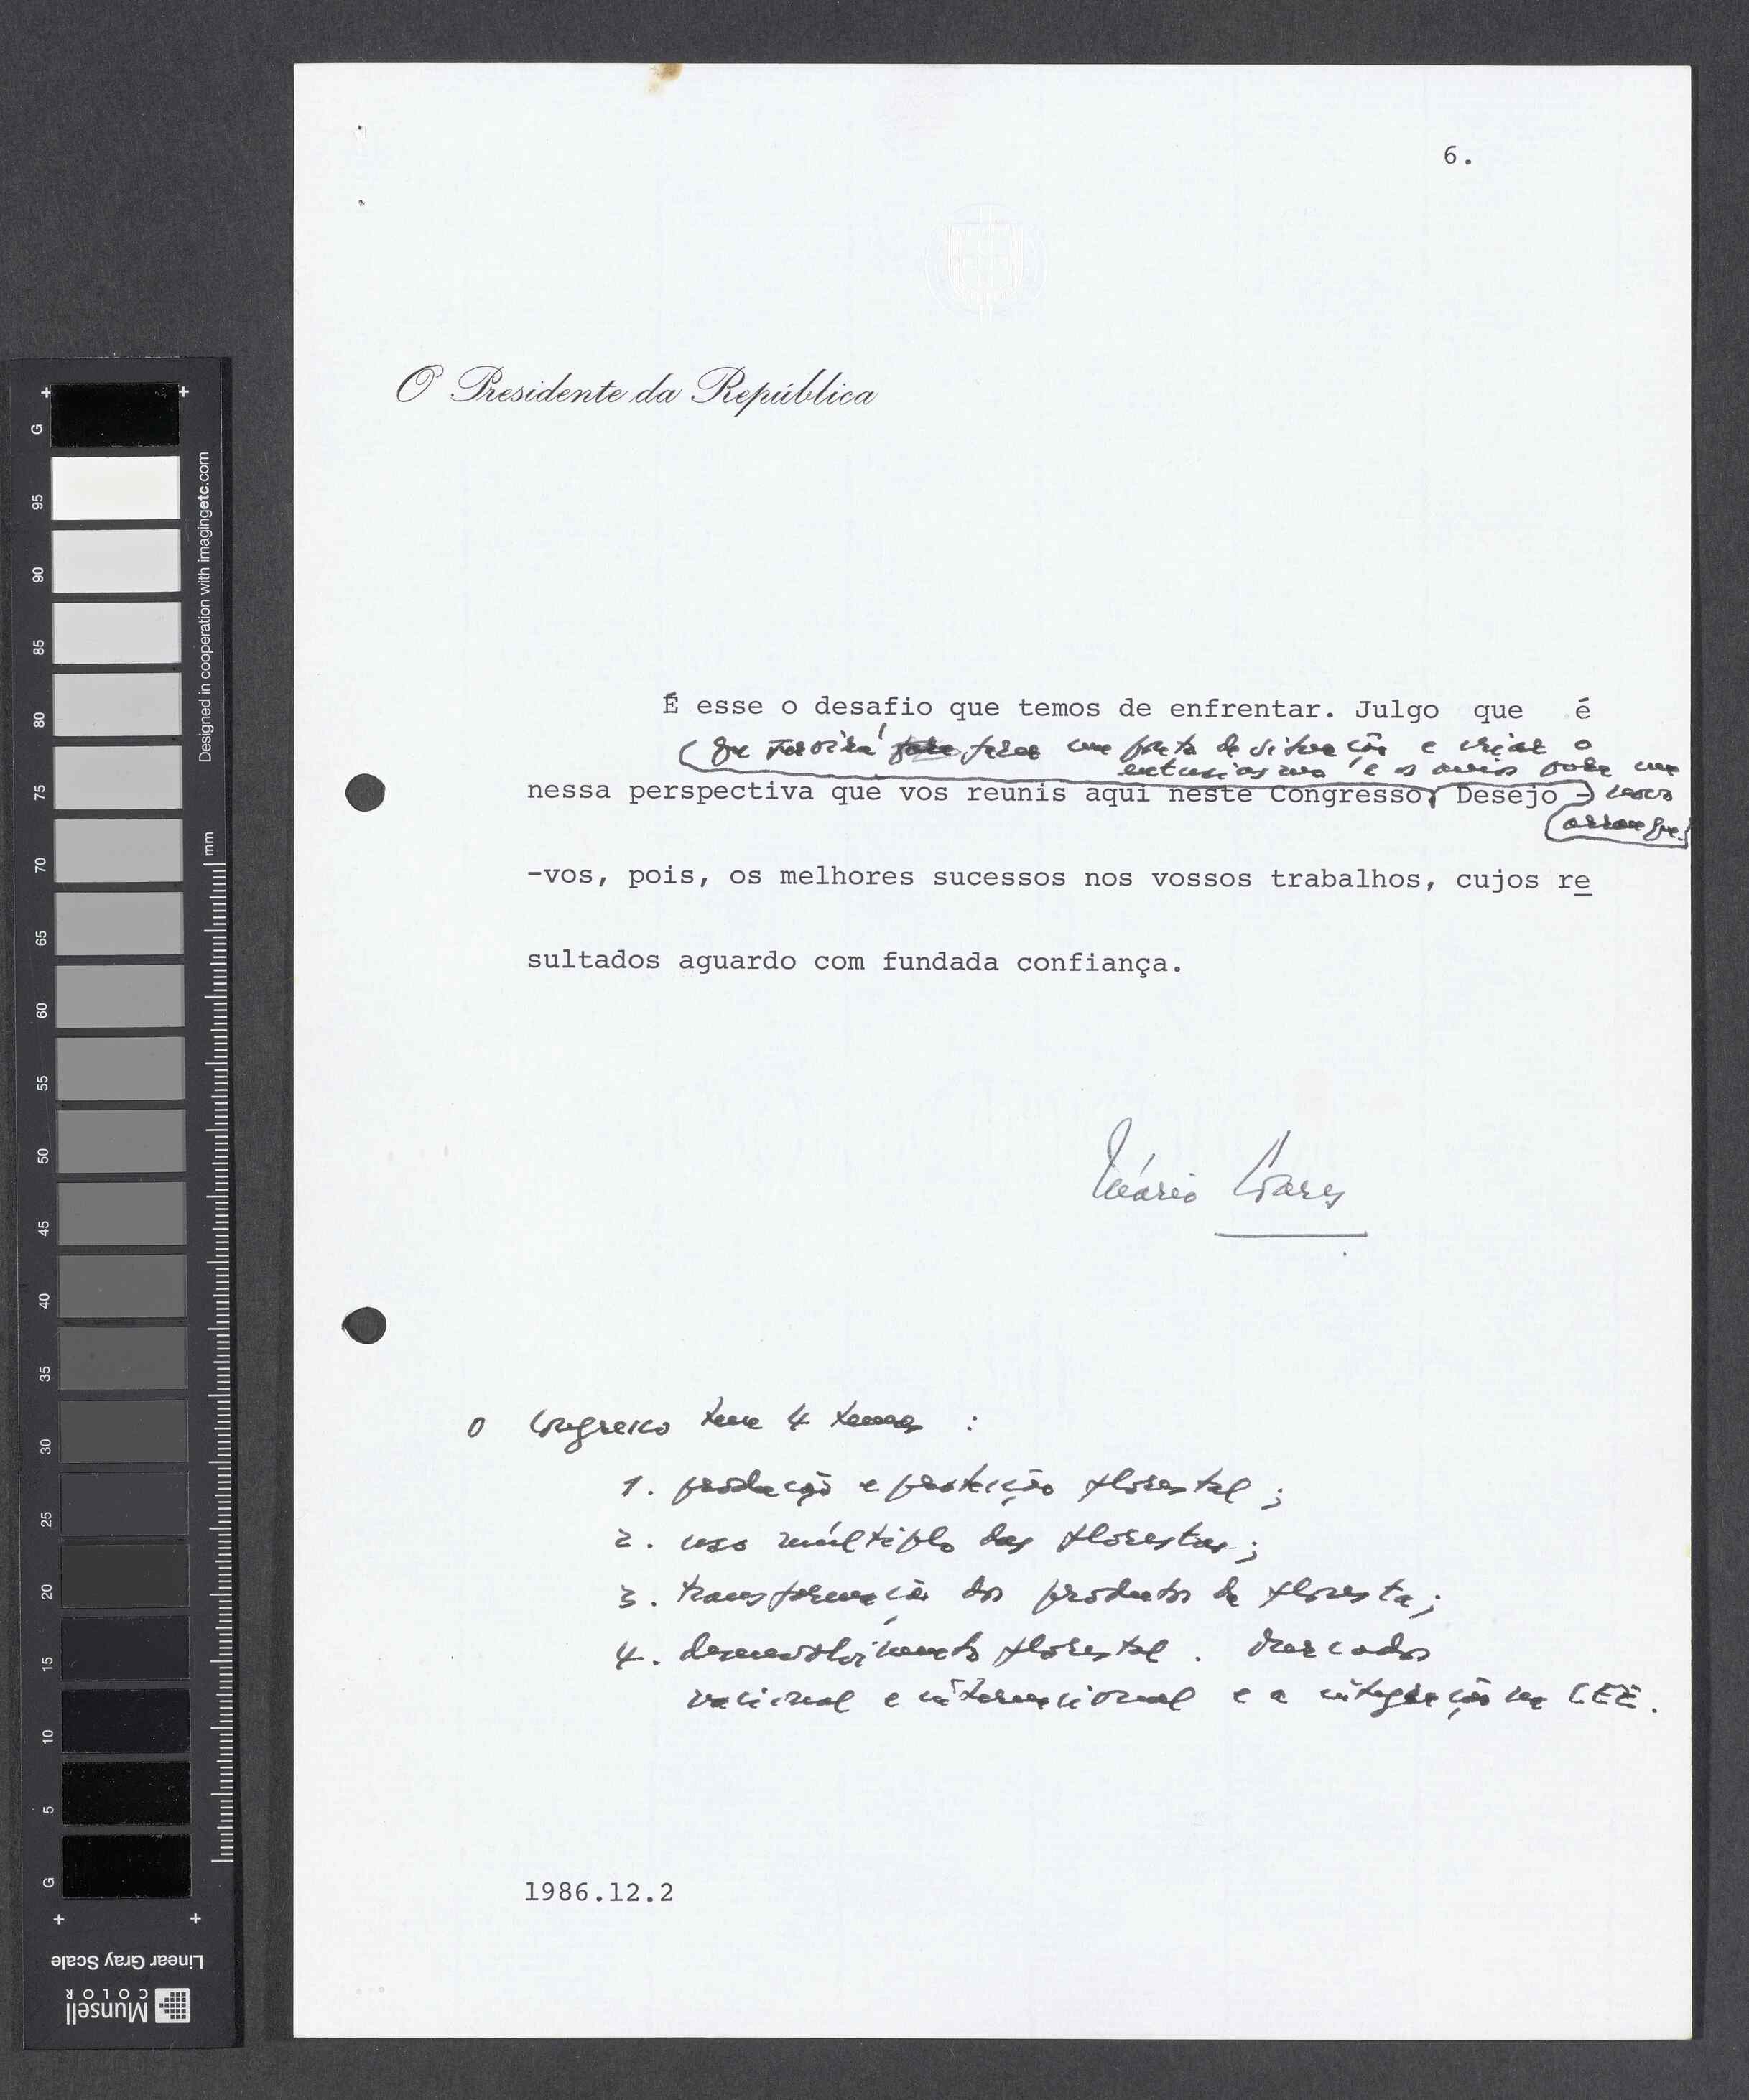 6.
O Presidente da República
É esse o desafio que temos de enfrentar. Julgo que é
(que servirá para fazer um ponto da situação e criar o
entusiasmo e os meios para um
nessa perspectiva que vos reunis aqui neste Congresso, Desejo -) novo
arranque.
-vos, pois, os melhores sucessos nos vossos trabalhos, cujos re
sultados aguardo com fundada confiança.
Mário Soares
O Congresso tem 4 temas :
1. produção e protecção florestal ;
2. uso múltiplo das florestas ;
3. transformação dos produtos da floresta ;
4. desenvolvimento florestal . Mercados
nacional e internacional e a integração na CEE .
1986.12.2
G
95
90
85
80
75
70
65
60
55
50
45
40
35
30
25
20
15
10
5
G
Designed in cooperation with imagingetc.com
mm
Linear Gray Scale
Munsell
COLOR